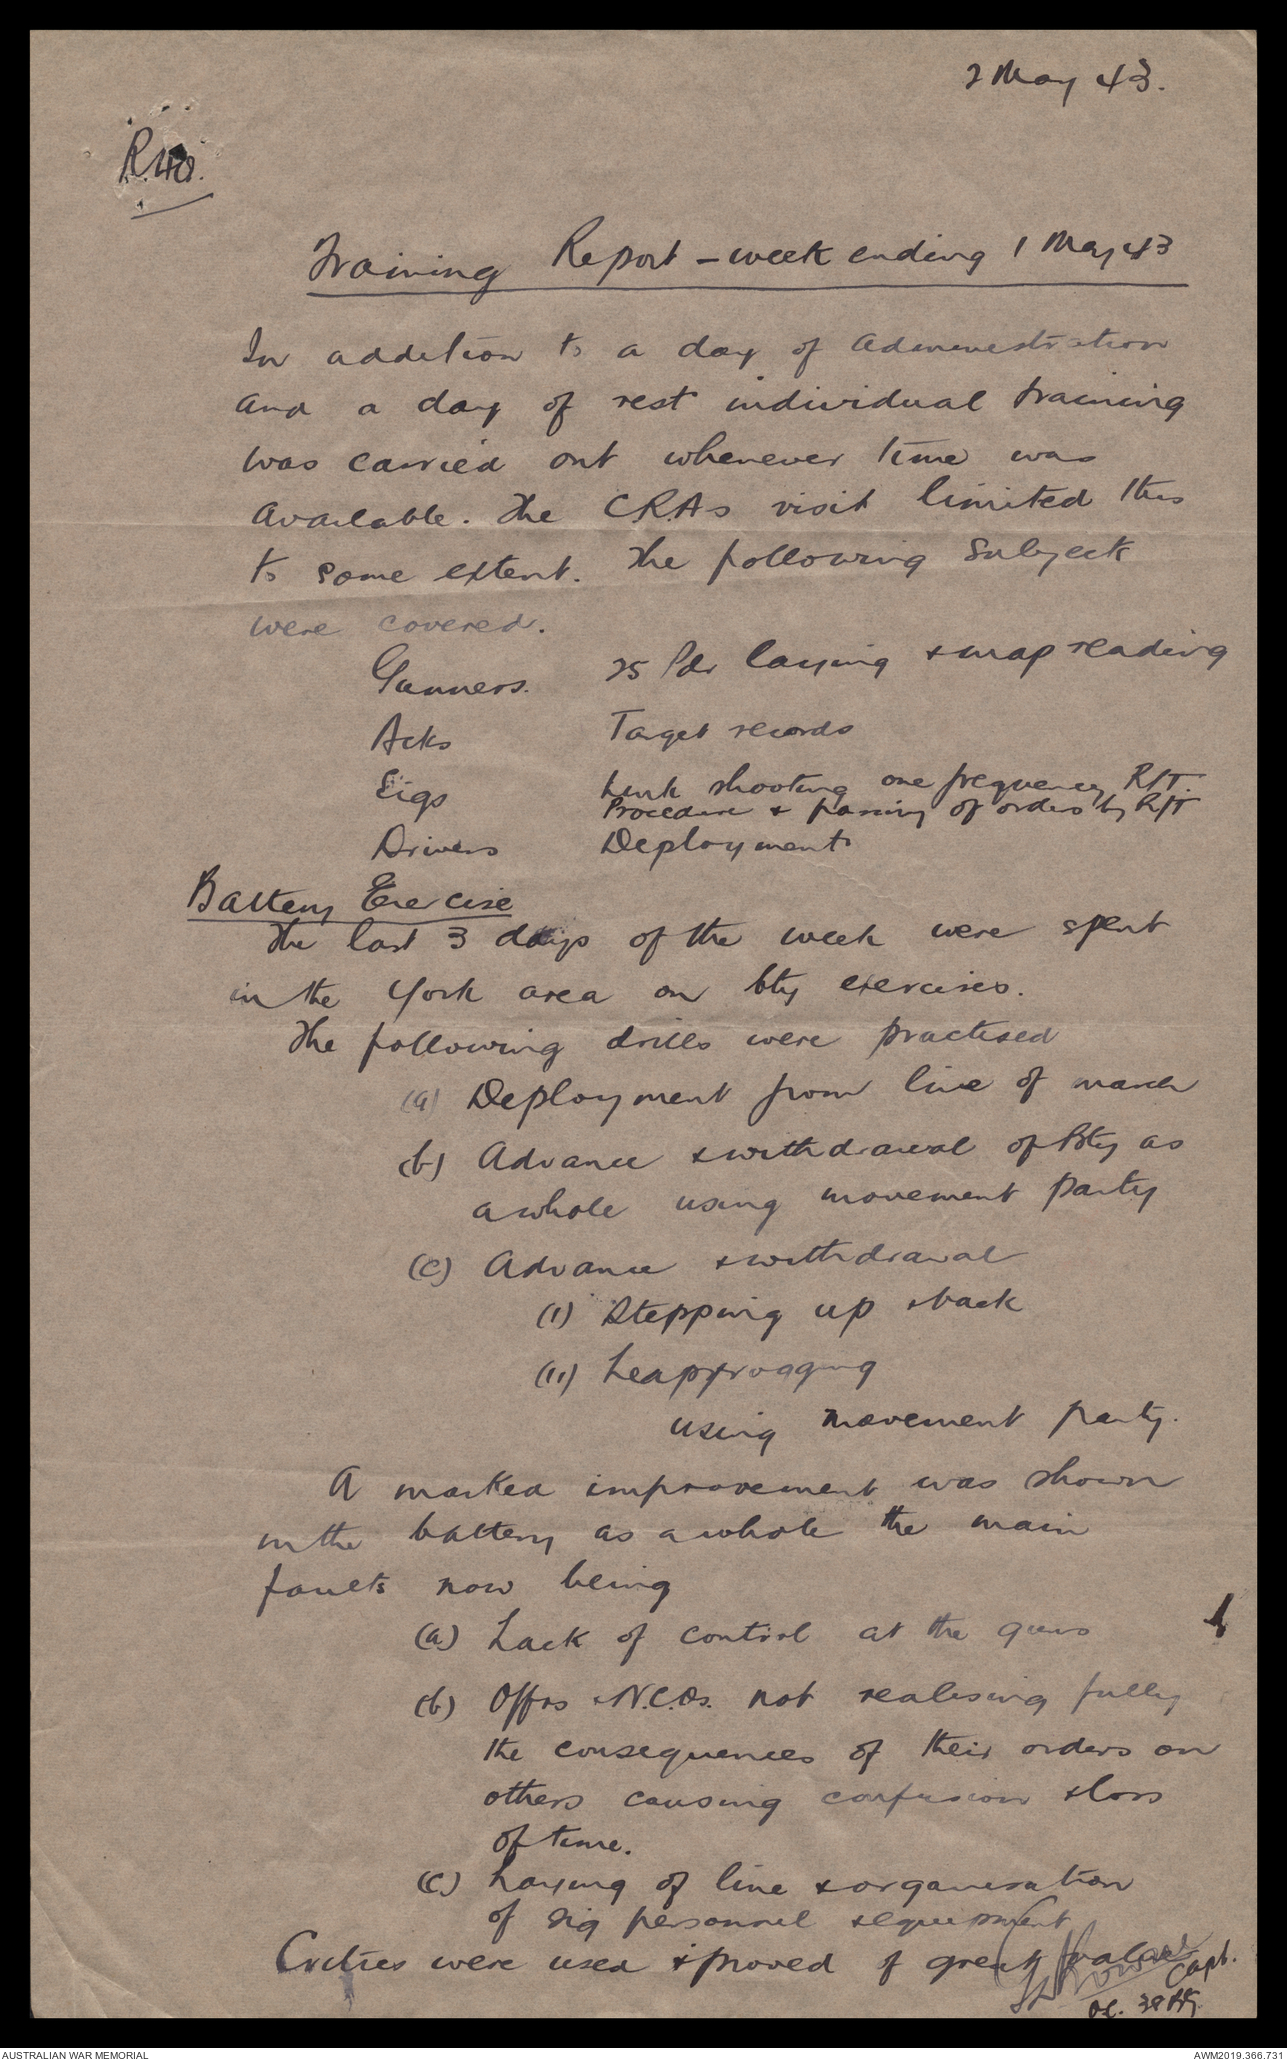 2 May 43.
R40.
Training Report - week ending 1 May 43
In addition to a day of administration
and a day of rest individual training
was carried out whenever time was
available. The C.R.A's visit limited this
to some extent. The following subjects
were covered.
Gunners. 25 Pdr laying & map reading
Acks Target records
Sigs Link shooting one frequency R/T.
Procedure & passing of orders by R/T
Drivers Deployment
Battery Exercise
The last 3 days of the week were spent
in the York area on bty exercises.
The following drills were practised
(a) Deployment from line of march
(b) Advance & withdrawal of Bty as
a whole using movement party
(c) Advance & withdrawal
(i) Stepping up & back
(ii) Leapfrogging
using movement party.
A marked improvement was shown
in the battery as a whole the main
faults now being
(a) Lack of control at the guns
(b) Offrs & N.C.Os. not realising fully
the consequences of their orders on
others causing confusion & loss
of time.
(c) Laying of line & organisation
of sig personnel & equipment
Critics were used & proved of great value
Capt.
OC. 38 Bty.
AUSTRALIAN WAR MEMORIAL
AWM2019.366.731